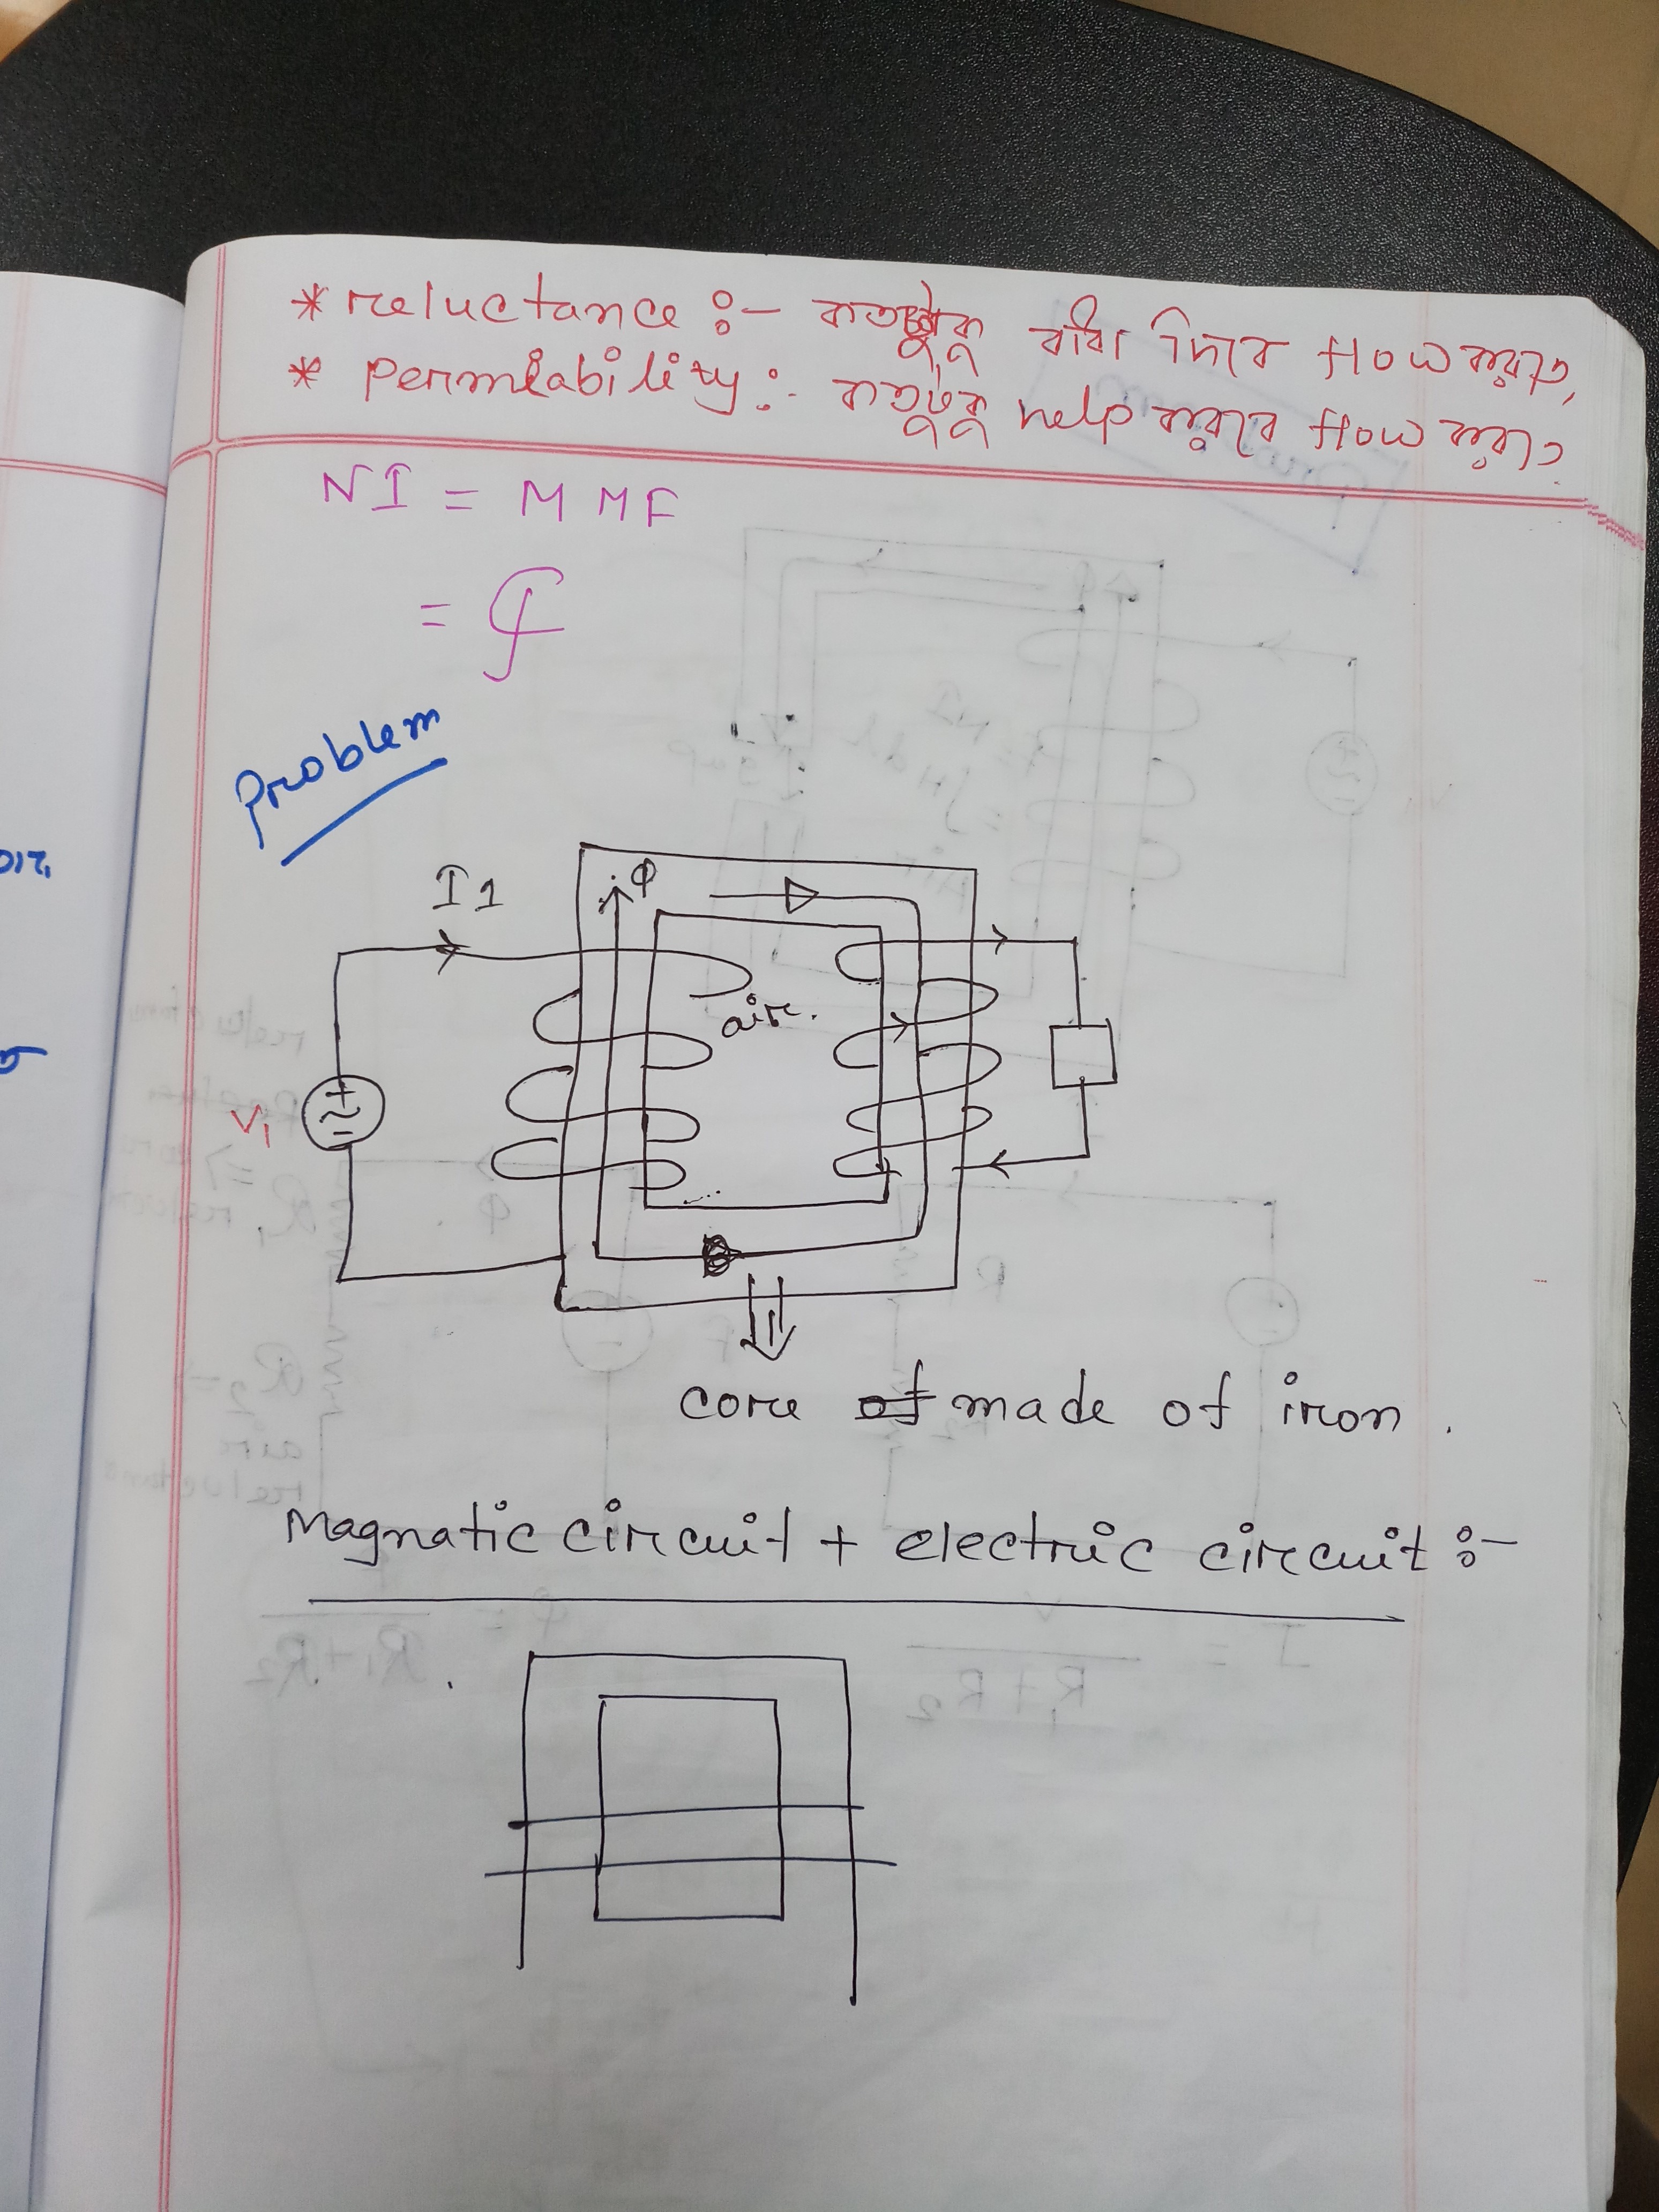 * reluctance :- কতটুকু বাধা দিবে flow করতে,
* Permiability :- কতটুকু help করবে flow করতে
NI = MMF
= F
Problem
I1
φ
air.
V1
+
~
-
core of made of iron.
Magnatic circuit + electric circuit :-